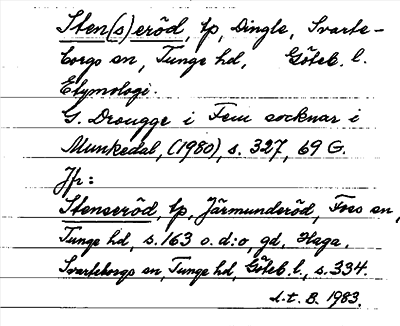 Sten(s)eröd, tp, Dingle, Svarte-
borgs sn, Tunge hd, Göteb. l.
Etymologi.
G. Drougge i Fem socknar i
Munkedal, (1980), s. 327, 69 G.
Jfr:
Stenseröd, tp, Järmunderöd, Foss sn,
Tunge hd, s. 163 o. d:o, gd, Haga,
Svarteborgs sn, Tunge hd, Göteb. l., s. 334.
d.t. B. 1983.